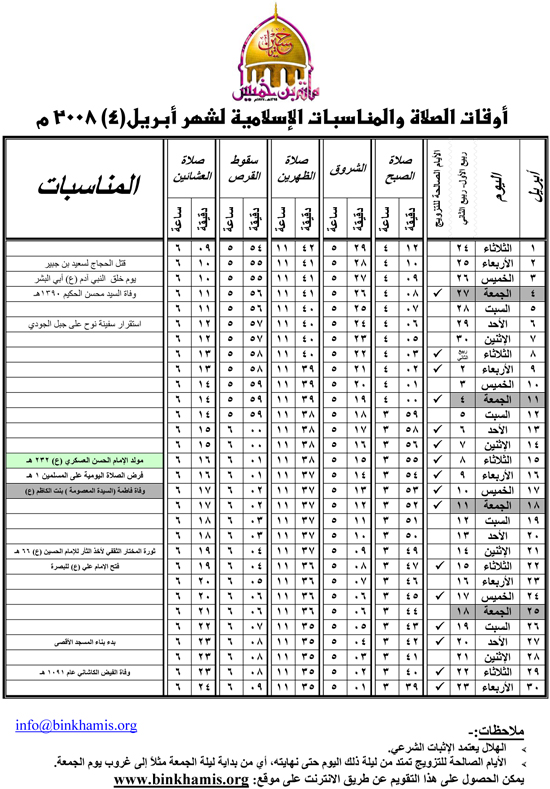 أوقات الصلاة والمناسبات الإسلامية لشهر أبريل(٤) ٢٠٠٨ م
أبريل اليوم ربيع الأول- ربيع الثاني الأيام الصالحة للتزويج صلاة الصبح الشروق صلاة الظهرين سقوط القرص صلاة العشائين المناسبات
دقيقة ساعة دقيقة ساعة دقيقة ساعة دقيقة ساعة دقيقة ساعة
١ الثلاثاء ٢٤ ١٢ ٤ ٢٩ ٥ ٤٢ ١١ ٥٤ ٥ ٠٩ ٦
٢ الأربعاء ٢٥ ١٠ ٤ ٢٨ ٥ ٤١ ١١ ٥٥ ٥ ١٠ ٦ قتل الحجاج لسعيد بن جبير
٣ الخميس ٢٦ ٠٩ ٤ ٢٧ ٥ ٤١ ١١ ٥٥ ٥ ١٠ ٦ يوم خلق النبي آدم (ع) أبي البشر
٤ الجمعة ٢٧ ✓ ٠٨ ٤ ٢٦ ٥ ٤١ ١١ ٥٦ ٥ ١١ ٦ وفاة السيد محسن الحكيم ١٣٩٠هـ
٥ السبت ٢٨ ٠٧ ٤ ٢٥ ٥ ٤٠ ١١ ٥٦ ٥ ١١ ٦
٦ الأحد ٢٩ ٠٦ ٤ ٢٤ ٥ ٤٠ ١١ ٥٧ ٥ ١٢ ٦ استقرار سفينة نوح على جبل الجودي
٧ الإثنين ٣٠ ٠٥ ٤ ٢٣ ٥ ٤٠ ١١ ٥٧ ٥ ١٢ ٦
٨ الثلاثاء ربيع الثاني ✓ ٠٣ ٤ ٢٢ ٥ ٤٠ ١١ ٥٨ ٥ ١٣ ٦
٩ الأربعاء ٢ ✓ ٠٢ ٤ ٢١ ٥ ٣٩ ١١ ٥٨ ٥ ١٣ ٦
١٠ الخميس ٣ ٠١ ٤ ٢٠ ٥ ٣٩ ١١ ٥٩ ٥ ١٤ ٦
١١ الجمعة ٤ ✓ ٠٠ ٤ ١٩ ٥ ٣٩ ١١ ٥٩ ٥ ١٤ ٦
١٢ السبت ٥ ٥٩ ٣ ١٨ ٥ ٣٨ ١١ ٥٩ ٥ ١٤ ٦
١٣ الأحد ٦ ✓ ٥٨ ٣ ١٧ ٥ ٣٨ ١١ ٠٠ ٦ ١٥ ٦
١٤ الإثنين ٧ ✓ ٥٦ ٣ ١٦ ٥ ٣٨ ١١ ٠٠ ٦ ١٥ ٦
١٥ الثلاثاء ٨ ✓ ٥٥ ٣ ١٥ ٥ ٣٨ ١١ ٠١ ٦ ١٦ ٦ مولد الإمام الحسن العسكري (ع) ٢٣٢ هـ
١٦ الأربعاء ٩ ✓ ٥٤ ٣ ١٤ ٥ ٣٧ ١١ ٠١ ٦ ١٦ ٦ فرض الصلاة اليومية على المسلمين ١ هـ
١٧ الخميس ١٠ ✓ ٥٣ ٣ ١٣ ٥ ٣٧ ١١ ٠٢ ٦ ١٧ ٦ وفاة فاطمة (السيدة المعصومة ) بنت الكاظم (ع)
١٨ الجمعة ١١ ✓ ٥٢ ٣ ١٢ ٥ ٣٧ ١١ ٠٢ ٦ ١٧ ٦
١٩ السبت ١٢ ٥١ ٣ ١١ ٥ ٣٧ ١١ ٠٣ ٦ ١٨ ٦
٢٠ الأحد ١٣ ٥٠ ٣ ١٠ ٥ ٣٧ ١١ ٠٣ ٦ ١٨ ٦
٢١ الإثنين ١٤ ٤٩ ٣ ٠٩ ٥ ٣٧ ١١ ٠٤ ٦ ١٩ ٦ ثورة المختار الثقفي لأخذ الثار للإمام الحسين (ع) ٦٦ هـ
٢٢ الثلاثاء ١٥ ✓ ٤٧ ٣ ٠٨ ٥ ٣٦ ١١ ٠٤ ٦ ١٩ ٦ فتح الإمام علي (ع) للبصرة
٢٣ الأربعاء ١٦ ٤٦ ٣ ٠٧ ٥ ٣٦ ١١ ٠٥ ٦ ٢٠ ٦
٢٤ الخميس ١٧ ✓ ٤٥ ٣ ٠٦ ٥ ٣٦ ١١ ٠٦ ٦ ٢٠ ٦
٢٥ الجمعة ١٨ ٤٤ ٣ ٠٦ ٥ ٣٦ ١١ ٠٦ ٦ ٢١ ٦
٢٦ السبت ١٩ ✓ ٤٣ ٣ ٠٥ ٥ ٣٥ ١١ ٠٧ ٦ ٢٢ ٦
٢٧ الأحد ٢٠ ✓ ٤٢ ٣ ٠٤ ٥ ٣٥ ١١ ٠٨ ٦ ٢٣ ٦ بدء بناء المسجد الأقصى
٢٨ الإثنين ٢١ ٤١ ٣ ٠٣ ٥ ٣٦ ١١ ٠٨ ٦ ٢٣ ٦
٢٩ الثلاثاء ٢٢ ✓ ٤٠ ٣ ٠٢ ٥ ٣٥ ١١ ٠٨ ٦ ٢٣ ٦ وفاة الفيض الكاشاني عام ١٠٩١ هـ
٣٠ الأربعاء ٢٣ ✓ ٣٩ ٣ ٠١ ٥ ٣٥ ١١ ٠٩ ٦ ٢٤ ٦
info@binkhamis.org
ملاحظات:-
الهلال يعتمد الإثبات الشرعي.
الأيام الصالحة للتزويج تمتد من ليلة ذلك اليوم حتى نهايته، أي من بداية ليلة الجمعة مثلاً إلى غروب يوم الجمعة.
يمكن الحصول على هذا التقويم عن طريق الانترنت على موقع: www.binkhamis.org